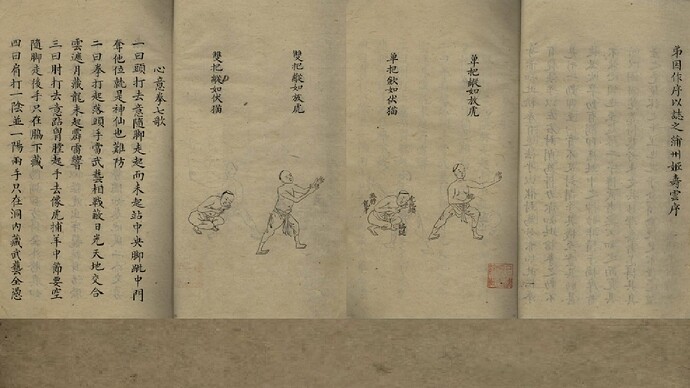 弟因作序以誌之蒲州姬壽雲序
单把縱如放虎
单把如伏猫
雙把縱如放虎
雙把縱如伏猫
心意拳七歌
一曰頭打去意隨脚走起而未起站中央脚跳中門
奪他位就是神仙也難防
二曰拳打起落頭手當武藝相戰敵日光天地交合
雲遮月藏龍未起霹雷響
三曰肘打去意貼胃膛起手去像虎捕羊中節要空
隨脚走後手只在脇下藏
四曰肩打一陰並一陽兩手只在洞内藏武藝全憑